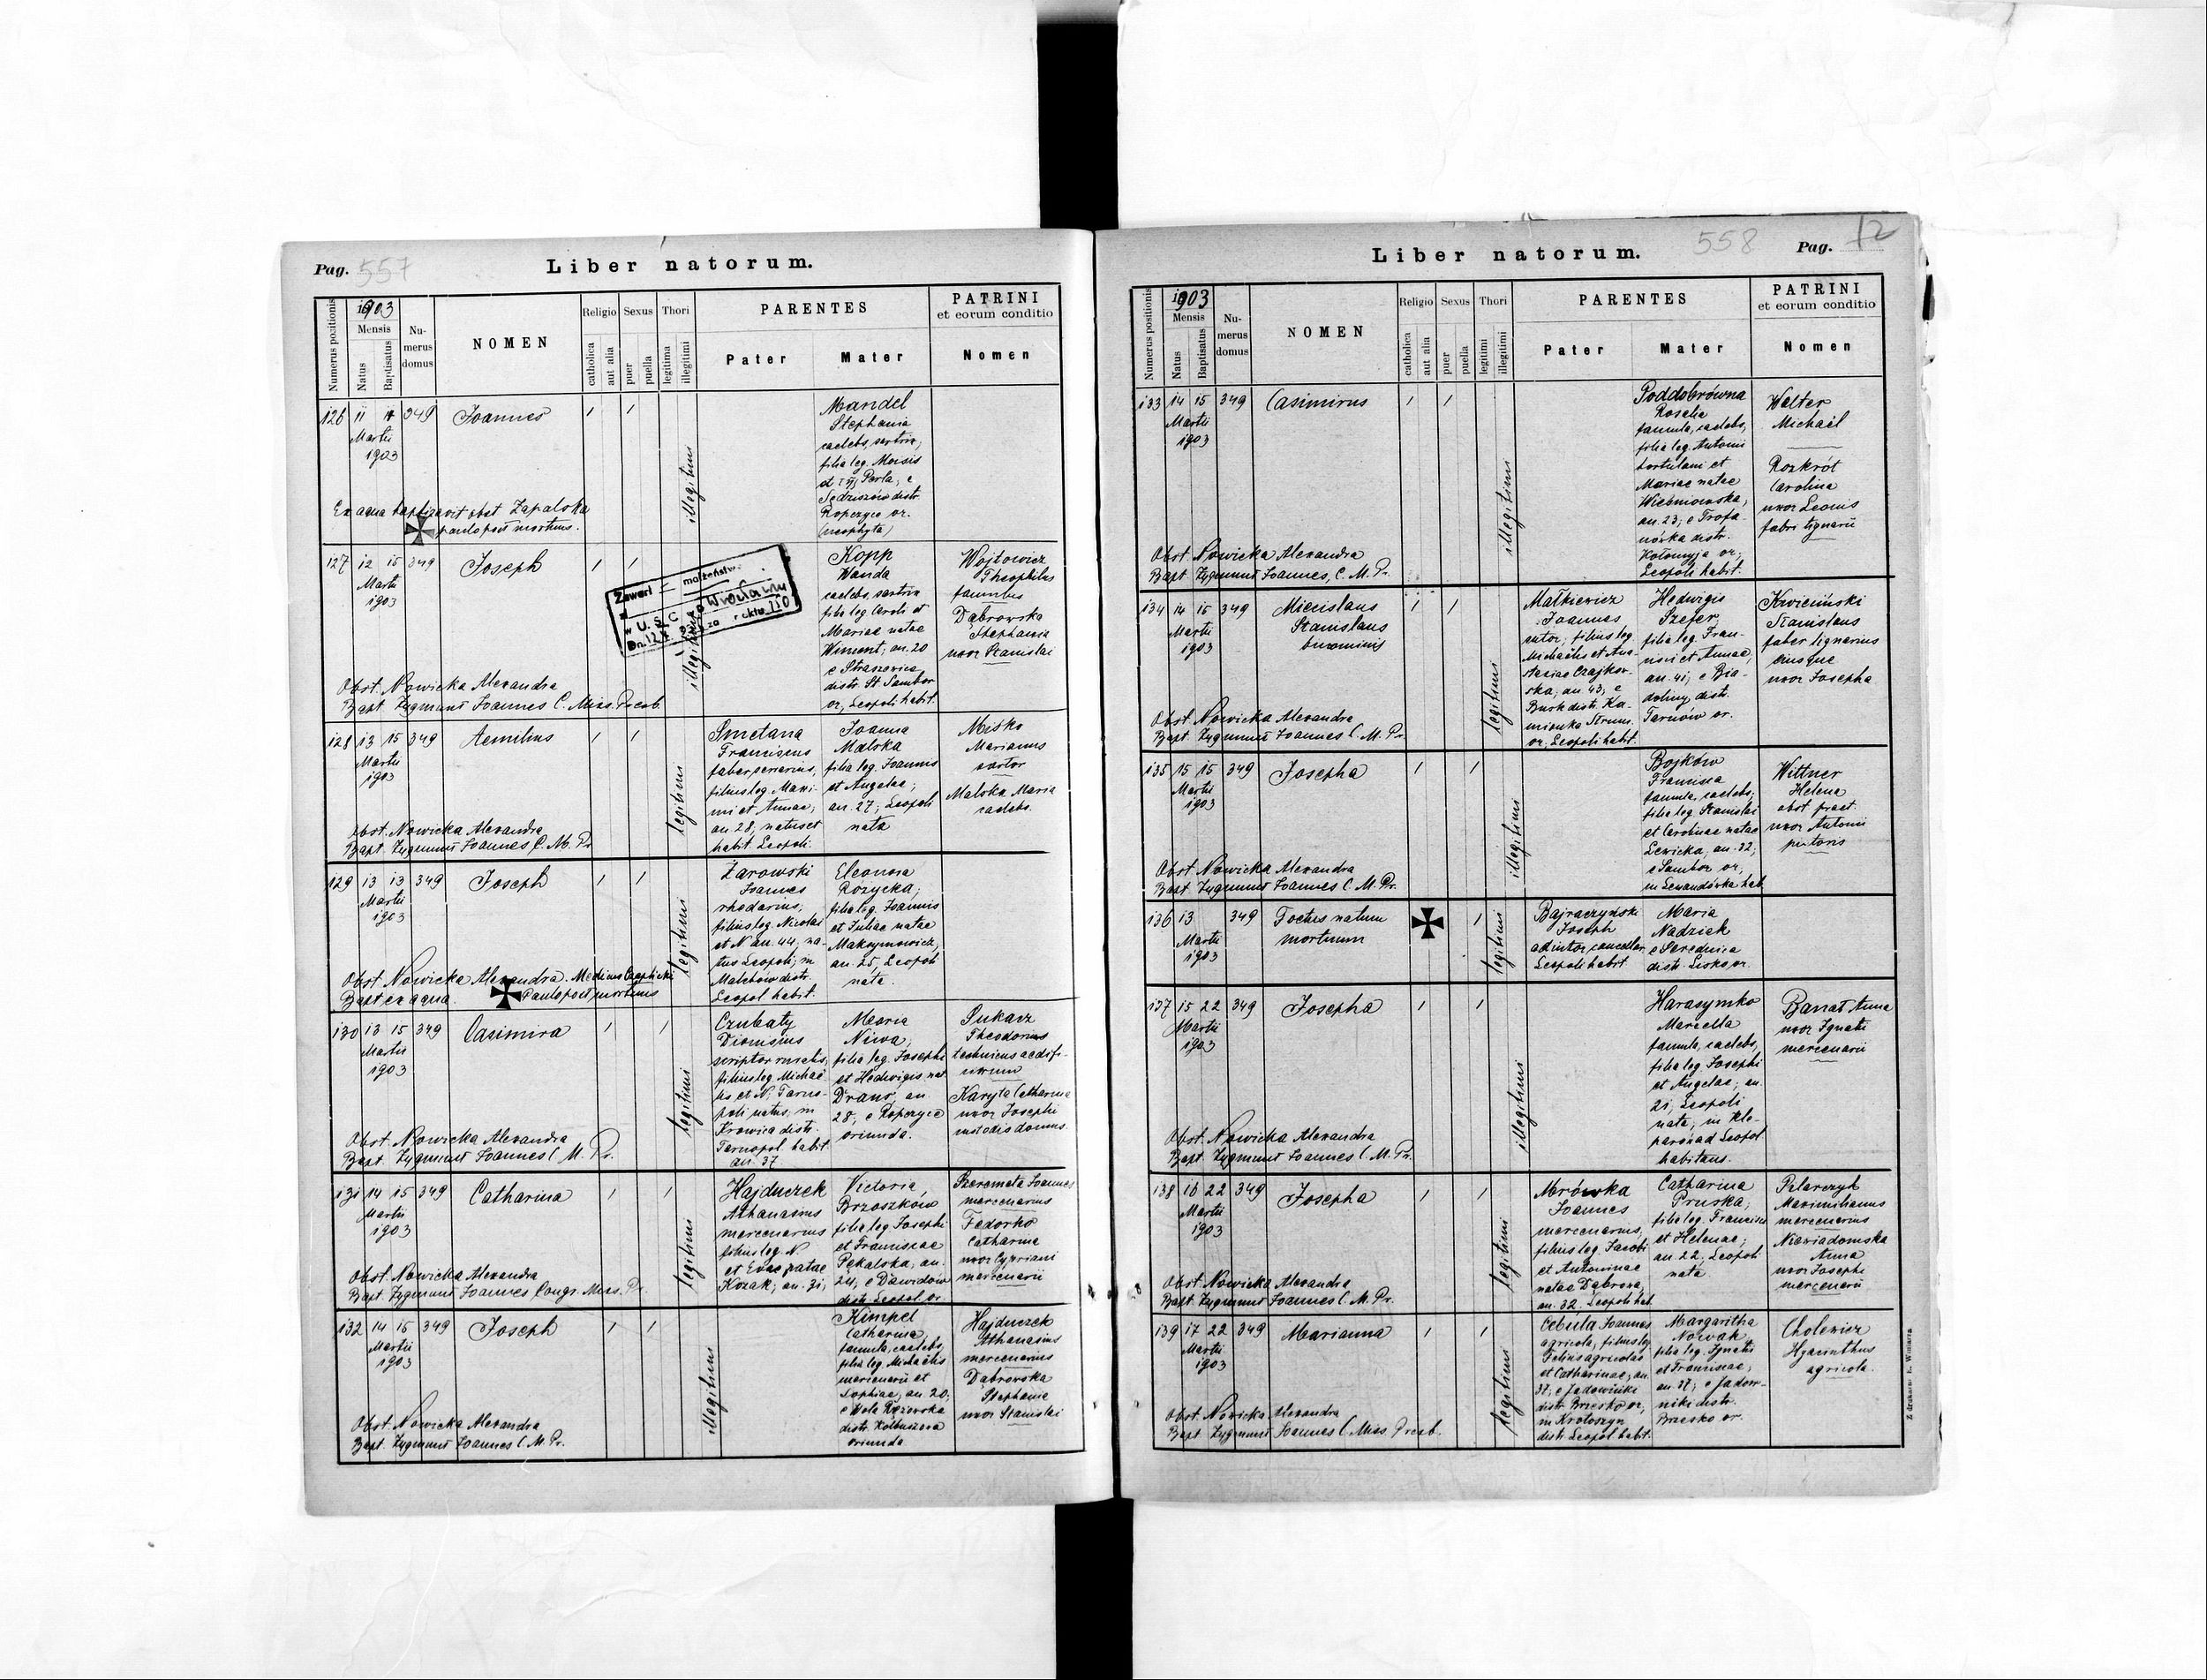 Pag. 557
Liber natorum.
Numerus positionis
1903
Mensis
Natus
Baptisatus
Numerus domus
NOMEN
Religio
catholica
aut alia
Sexus
puer
puella
Thori
legitima
illegitimi
PARENTES
Pater
Mater
PATRINI
et eorum conditio
Nomen
126 11 349 Joannes
Martii
1903
illegitimi
Mandel
Stephania
caelebs, sartrix,
filia leg. Moisis
Perla, e
Sędziszów distr.
Ropczyce or.
(neophyta)
Ex aqua baptizavit obst. Zapalska
paulo post mortuus.
127 12 15 349 Joseph
Martii
1903
Zawarł małżeństwo
w U. S. C. Wrocław
illegitimi
Kopp
Wanda
caelebs, sartrix
filia leg Caroli et
Mariae natae
Winient; an. 20
e Straszewice
distr. St Sambor
or, Leopoli habit.
Wojtowicz
Theophilus
famulus
Dąbrowska
Stephania
uxor Stanislai
Obst. Nowicka Alexandra
Bapt Zygmunt Joannes C. Miss. Presb.
128 13 15 349 Aemilius
Martii
1903
legitimi
Smetana
Franciscus
faber serrarius,
filius leg. Maxi-
mi et Annae;
an. 28, natus et
habit Leopoli.
Joanna
Malska
filia leg. Joannis
et Angelae;
an. 27; Leopoli
nata
Misko
Marianus
sartor
Malska Maria
caelebs.
Obst. Nowicka Alexandra
Bapt. Zygmunt Joannes C. M. Pr
129 13 13 349 Joseph
Martii
1903
legitimi
Żarowski
Joannes
rhedarius,
filius leg. Nicolai
et N an. 44; na-
tus Leopoli; in
Malchów distr.
Leopol habit.
Eleonora
Rozycka;
filia leg. Joannis
et Juliae natae
Maksymowicz,
an. 25, Leopoli
nata.
Obst Nowicka Alexandra. Medicus
Bapt ex aqua Paulo post mortuus
130 13 15 349 Casimira
Martii
1903
legitimi
Czubaty
Dionisius
scriptor
filius leg. Michaë-
lis et N; Tarno-
poli natus; in
Krowica distr.
Tarnopol habit
an. 37
Maria
Niwa;
filia leg. Josephi
et Hedwigis nat
Drans, an.
28; e Ropczyce
oriunda.
Łukasz
Theodorus
technicus aedifi-
ciorum
Karyła Catharina
uxor Josephi
custodis domus.
Obst. Nowicka Alexandra
Bapt. Zygmunt Joannes C M. Pr.
131 14 15 349 Catharina
Martii
1903
legitimi
Hajduczek
Athanasius
mercenarius
filius leg. N
et Evae natae
Kozak; an. 31;
Victoria
Brzoszków
filia leg Josephi
et Franciscae
Pękalska, an.
24; e Dawidów
distr. Leopol. or.
Szeremeta Joannes
mercenarius
Fedorko
Catharina
uxor Cypriani
mercenarii
Obst. Nowicka Alexandra
Bapt. Zygmunt Joannes Congr. Miss. Pr.
132 14 15 349 Joseph
Martii
1903
illegitimi
Kimpel
Catharina
famula, caelebs,
filia leg. Michaëlis
mercenarii et
Sophiae; an. 20;
e Wola Rzzewska
distr. Kolbuszowa
oriunda
Hajduczek
Athanasius
mercenarius
Dąbrowska
Stephania
uxor Stanislai
Obst. Nowicka Alexandra
Bapt. Zygmunt Joannes C. M. Pr.
Liber natorum.
558
Pag. 72
Numerus positionis
1903
Mensis
Natus
Baptisatus
Numerus domus
NOMEN
Religio
catholica
aut alia
Sexus
puer
puella
Thori
legitimi
illegitimi
PARENTES
Pater
Mater
PATRINI
et eorum conditio
Nomen
133 14 15 349 Casimirus
Martii
1903
illegitimi
Poddobrówna
Rosalia
famula, caelebs,
filia leg. Antonii
hortulani et
Mariae natae
Wiśniowska;
an. 23; e Trofa-
nówka distr.
Kołomyja or;
Leopoli habit.
Walter
Michaël
Rozkrót
Carolina
uxor Leonis
fabri lignarii
Obst. Nowicka Alexandra
Bapt. Zygmunt Joannes, C. M. Pr.
134 14 15 349 Miecislaus
Stanislaus
binominis
Martii
1903
legitimi
Małkiewicz
Joannes
sutor; filius leg.
Michaëlis et Ana-
stasiae Czajkow-
ska, an. 43; e
Busk distr. Ka-
mionka Strum.
or. Leopoli habit.
Hedwigis
Szefer;
filia leg. Fran-
cisci et Annae;
an. 41; e Bia-
doliny distr.
Tarnów or.
Kwiciński
Stanislaus
faber lignarius
eiusque
uxor Josepha
Obst. Nowicka Alexandra
Bapt. Zygmunt Joannes C. M. Pr.
135 15 15 349 Josepha
Martii
1903
illegitimi
Bojków
Francisca
famula, caelebs;
filia leg. Stanislai
et Carolinae natae
Lewicka, an. 32;
e Sambor or,
in Lewandówka hab
Wittner
Helena
obst. pract.
uxor Antonii
pistoris
Obst. Nowicka Alexandra
Bapt. Zygmunt Joannes C. M. Pr.
136 13 349 Foetus natum
mortuum
Martii
1903
legitimi
Bajraczyński
Joseph
adiutor cancellar.
Leopoli habit.
Maria
Nadziek
e Serednica
distr. Lisko or.
137 15 22 349 Josepha
Martii
1903
illegitimi
Harasymko
Marcella
famula, caelebs,
filia leg Josephi
et Angelae; an.
21; Leopoli
nata; in Kle-
parów ad Leopol.
habitans.
Banat Anna
uxor Ignatii
mercenarii
Obst. Nowicka Alexandra
Bapt. Zygmunt Joannes C. M. Pr.
138 16 22 349 Josepha
Martii
1903
legitimi
Mrówka
Joannes
mercenarius,
filius leg. Jacobi
et Antoninae
natae Dąbrowa;
an. 32, Leopoli hab.
Catharina
Pruska;
filia leg. Francisci
et Helenae;
an. 22, Leopoli
nata
Pelarczyk
Maximilianus
mercenarius
Niewiadomska
Anna
uxor Josephi
mercenarii
Obst. Nowicka Alexandra
Bapt. Zygmunt Joannes C. M. Pr.
139 17 22 349 Marianna
Martii
1903
legitimi
Cebula Joannes
agricola, filius leg
Felixis agricolae
et Catharinae; an.
37; e Jadowniki
distr. Brzesko or,
in Krotoszyn
distr. Leopol habit.
Margaritha
Nowak
filia leg. Ignatii
et Franciscae;
an 37; e Jadow-
niki distr.
Brzesko or.
Cholewicz
Hyacinthus
agricola.
Obst. Nowicka Alexandra
Bapt. Zygmunt Joannes C Miss Presb.
Z drukarni E. Winiarza